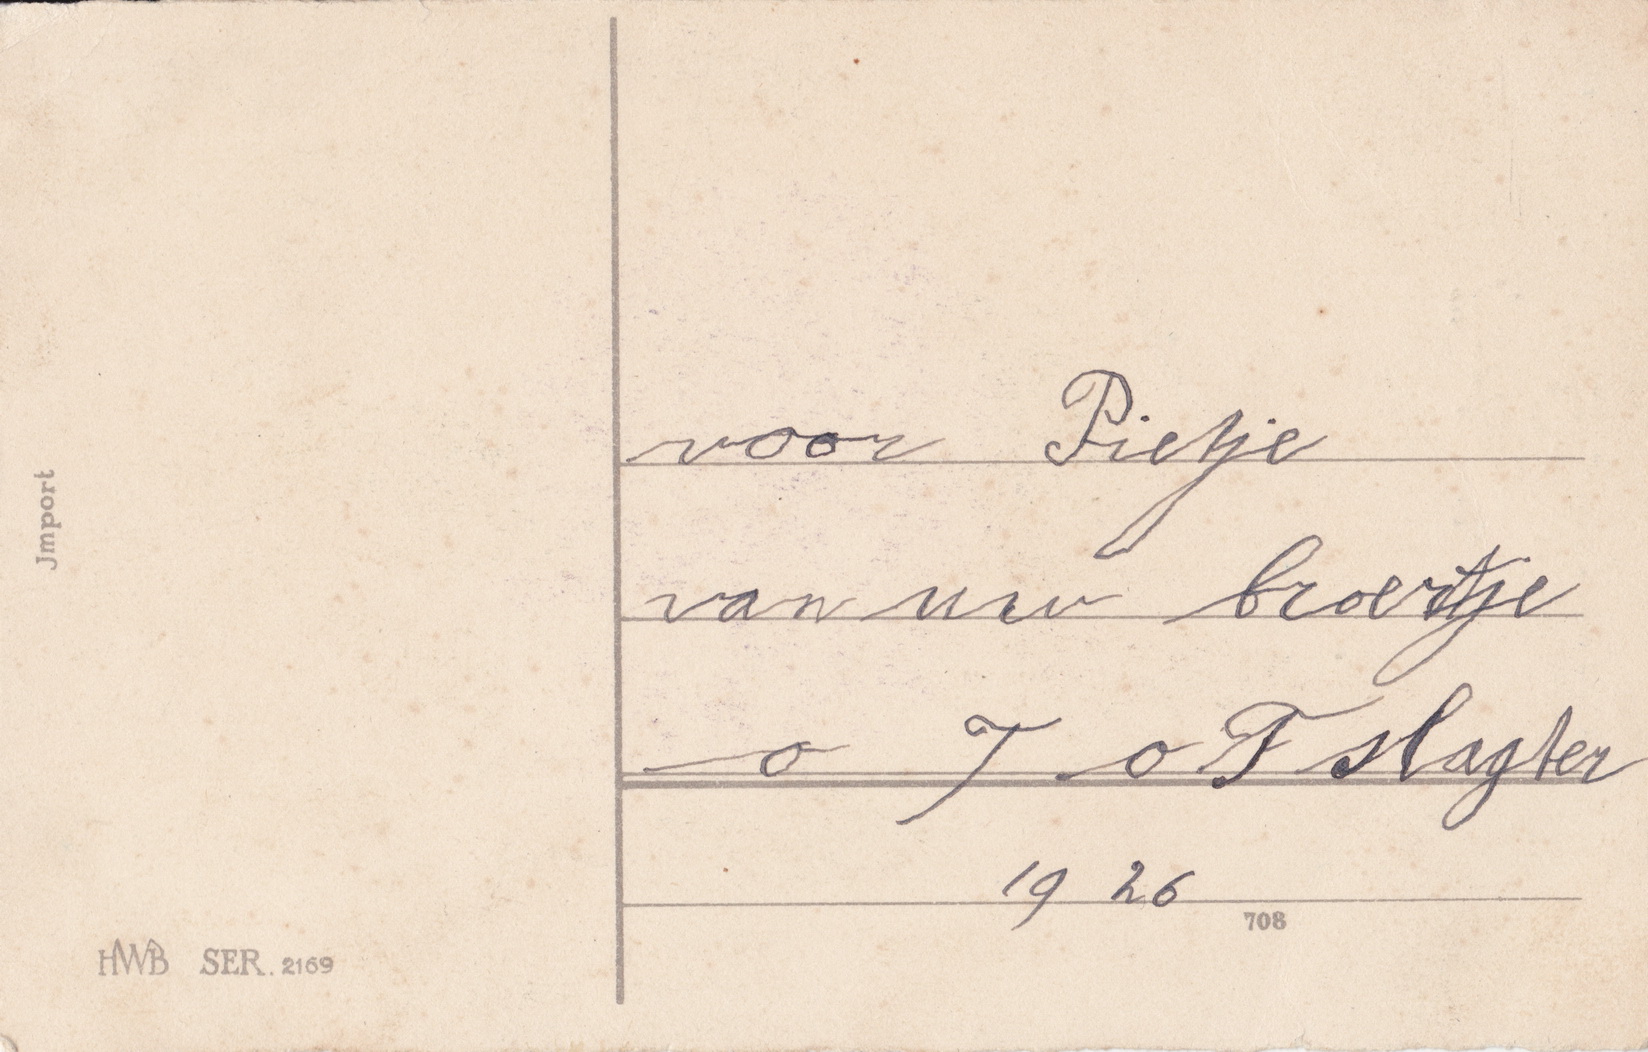 Jmport
voor Pietje
van uw broertje
o J o F slagter
19 26
708
HWB SER. 2169